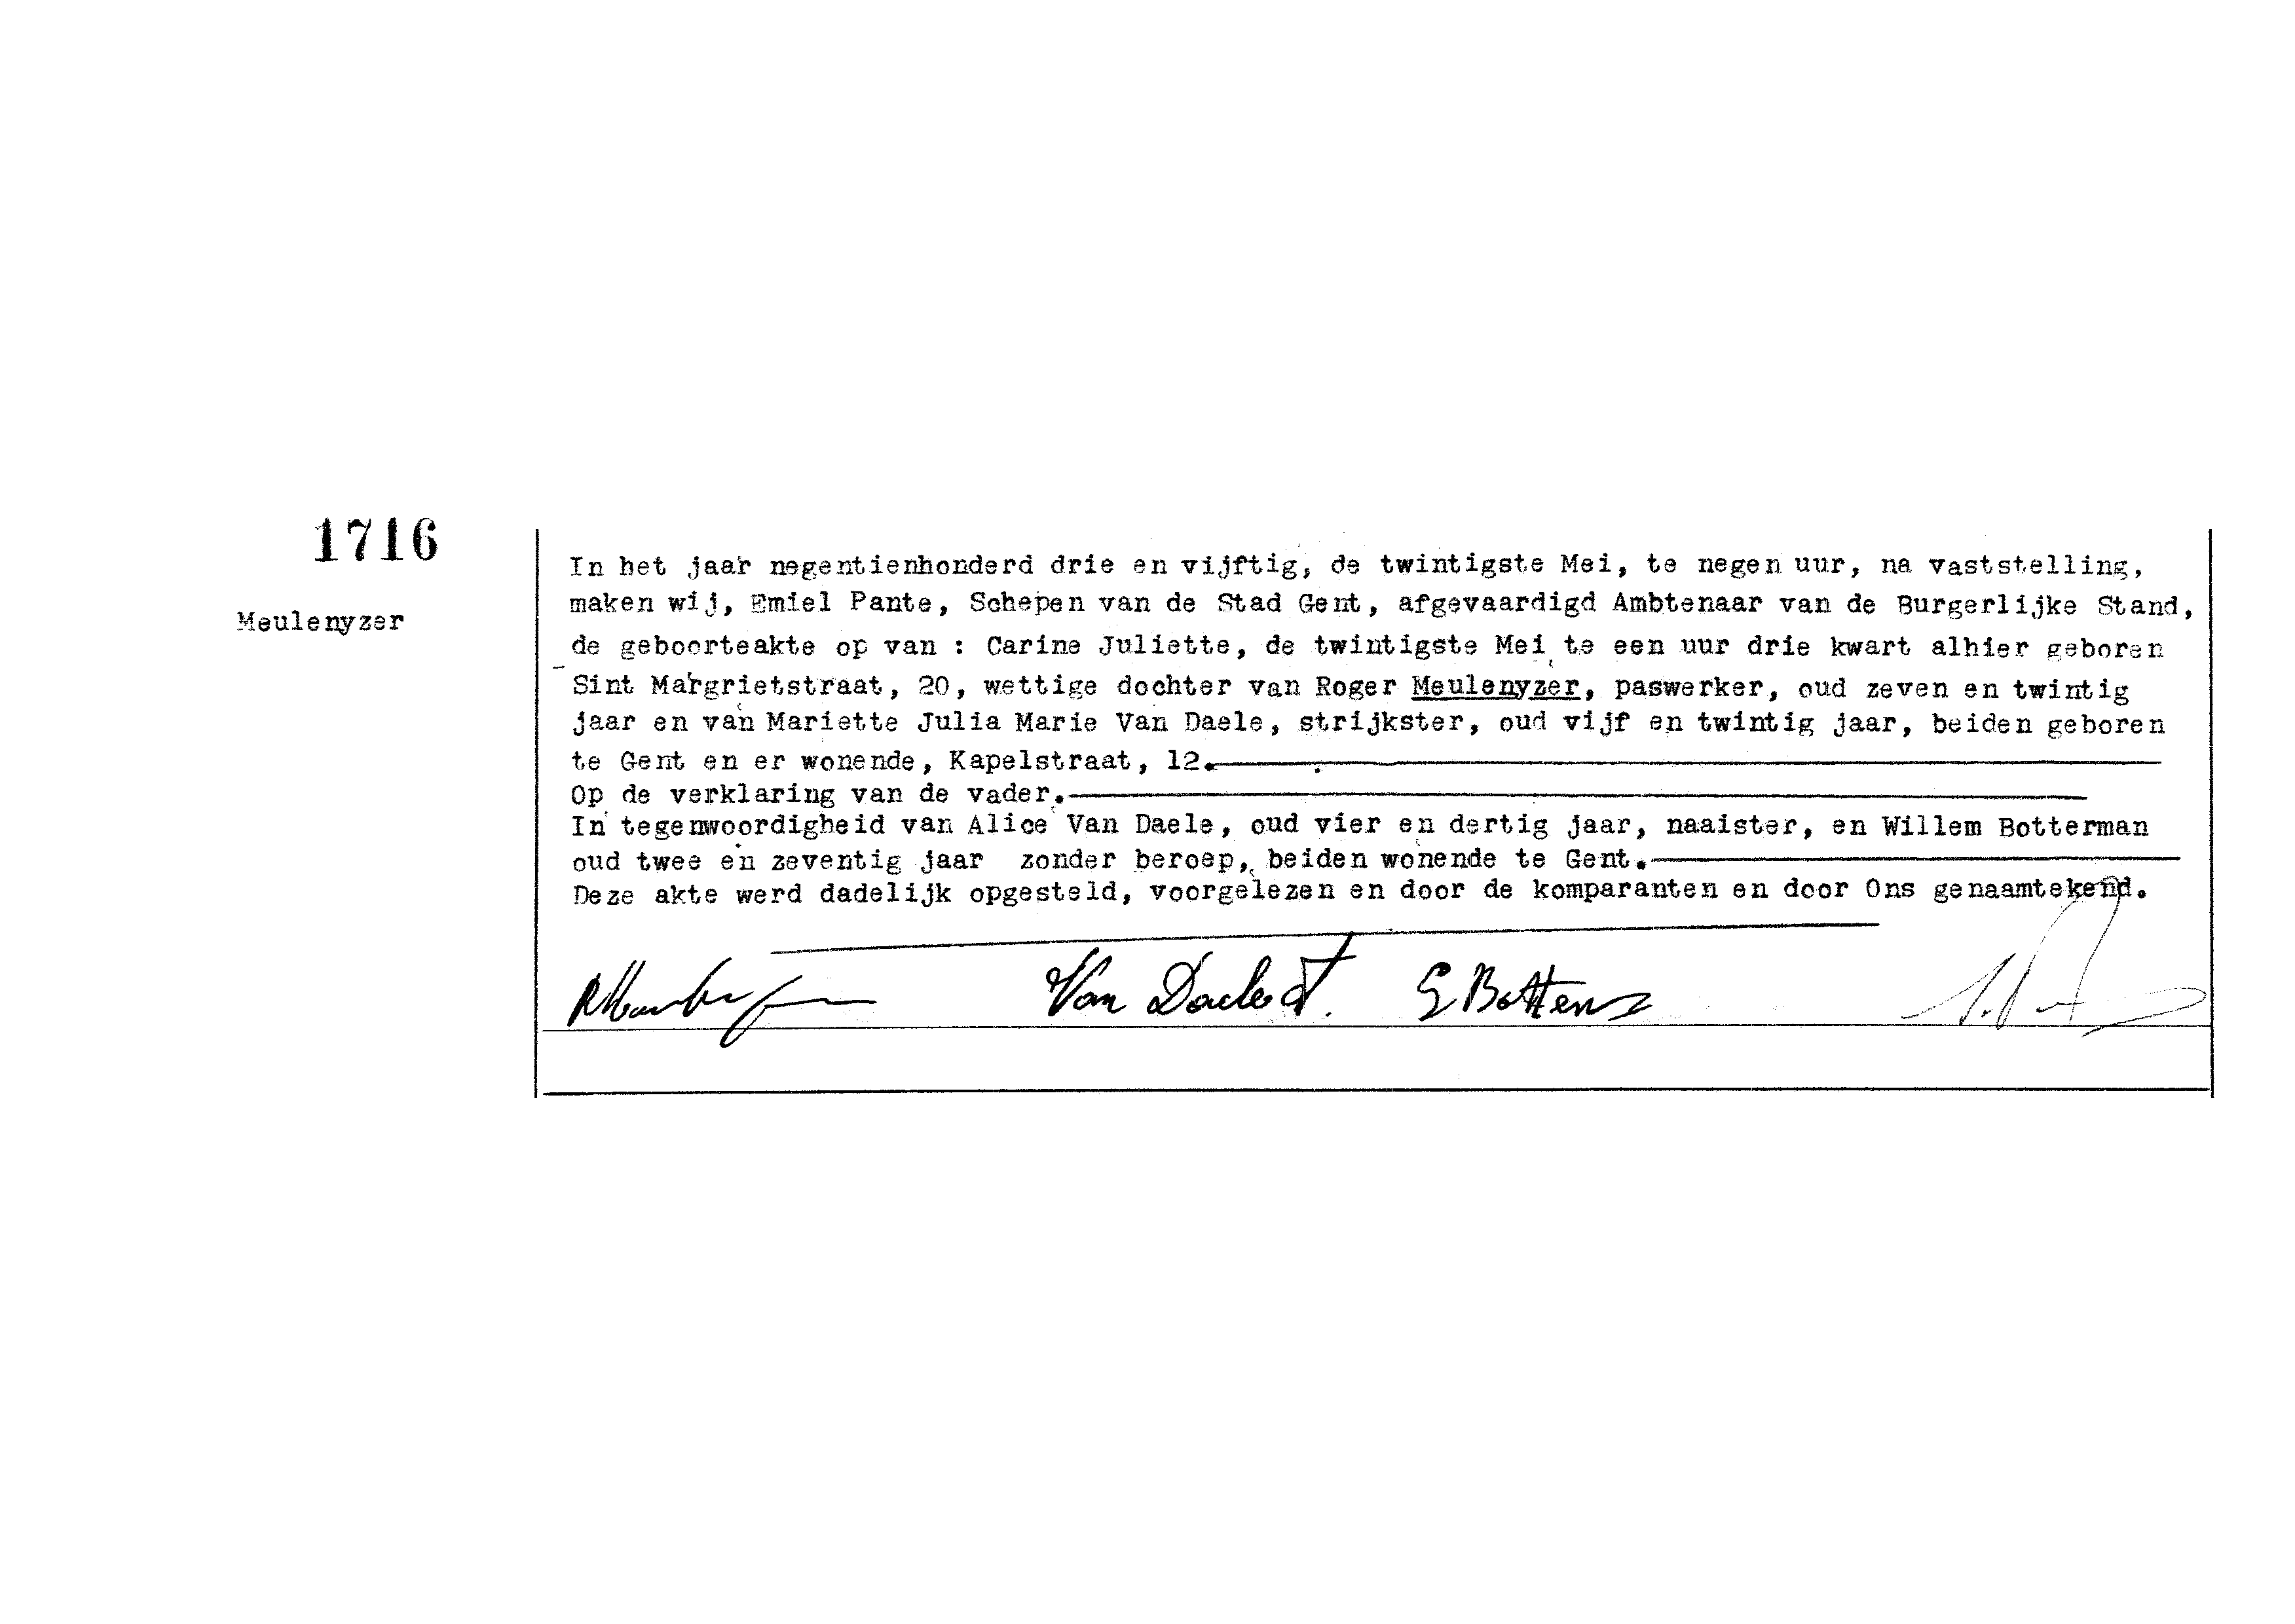 1716
Meulenyzer
In het jaar negentienhonderd drie en vijftig, de twintigste Mei, te negen uur, na vaststelling,
maken wij, Emiel Pante, Schepen van de Stad Gent, afgevaardigd Ambtenaar van de Burgerlijke Stand,
de geboorteakte op van : Carine Juliette, de twintigste Mei te een uur drie kwart alhier geboren
Sint Margrietstraat, 20, wettige dochter van Roger Meulenyzer, paswerker, oud zeven en twintig
jaar en van Mariette Julia Marie Van Daele, strijkster, oud vijf en twintig jaar, beiden geboren
te Gent en er wonende, Kapelstraat, 12.
Op de verklaring van de vader.
In tegenwoordigheid van Alice Van Daele, oud vier en dertig jaar, naaister, en Willem Botterman
oud twee en zeventig jaar zonder beroep, beiden wonende te Gent.
Deze akte werd dadelijk opgesteld, voorgelezen en door de komparanten en door Ons genaamtekend.
Van